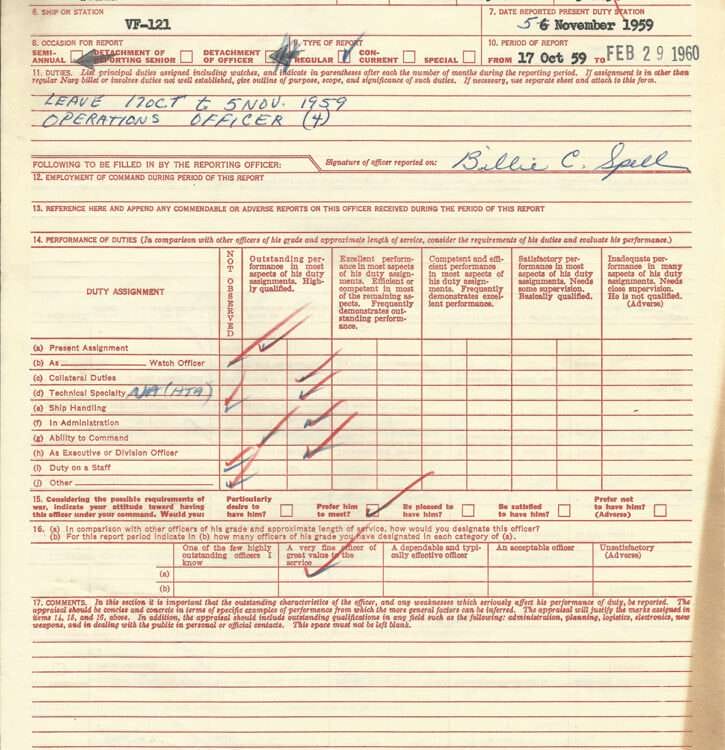 6. SHIP OR STATION
VF-121
7. DATE REPORTED PRESENT DUTY STATION
5 6 November 1959
8. OCCASION FOR REPORT
SEMI-ANNUAL DETACHMENT OF REPORTING SENIOR DETACHMENT OF OFFICER
9. TYPE OF REPORT
REGULAR CONCURRENT SPECIAL
10. PERIOD OF REPORT
FROM 17 Oct 59 TO FEB 29 1960
11. DUTIES. List principal duties assigned including watches, and indicate in parentheses after each the number of months during the reporting period. If assignment is in other than
regular Navy billet or involves duties not well established, give outline of purpose, scope, and significance of such duties. If necessary, use separate sheet and attach to this form.
LEAVE 17OCT to 5NOV. 1959
OPERATIONS OFFICER (4)
FOLLOWING TO BE FILLED IN BY THE REPORTING OFFICER:
Signature of officer reported on: Billie C. Spell
12. EMPLOYMENT OF COMMAND DURING PERIOD OF THIS REPORT
13. REFERENCE HERE AND APPEND ANY COMMENDABLE OR ADVERSE REPORTS ON THIS OFFICER RECEIVED DURING THE PERIOD OF THIS REPORT
14. PERFORMANCE OF DUTIES (In comparison with other officers of his grade and approximate length of service, consider the requirements of his duties and evaluate his performance.)
DUTY ASSIGNMENT
NOT OBSERVED
Outstanding per-
formance in most
aspects of his duty
assignments. High-
ly qualified.
Excellent perform-
ance in most aspects
of his duty assign-
ments. Efficient or
competent in most
of the remaining as-
pects. Frequently
demonstrates out-
standing perform-
ance.
Competent and effi-
cient performance
in most aspects of
his duty assign-
ments. Frequently
demonstrates excel-
lent performance.
Satisfactory per-
formance in most
aspects of his duty
assignments. Needs
some supervision.
Basically qualified.
Inadequate per-
formance in many
aspects of his duty
assignments. Needs
close supervision.
He is not qualified.
(Adverse)
(a) Present Assignment
(b) As Watch Officer
(c) Collateral Duties
(d) Technical Specialty NA (HTA)
(e) Ship Handling
(f) In Administration
(g) Ability to Command
(h) As Executive or Division Officer
(i) Duty on a Staff
(j) Other
15. Considering the possible requirements of
war, indicate your attitude toward having
this officer under your command. Would you:
Particularly
desire to
have him?
Prefer him
to most?
Be pleased to
have him?
Be satisfied
to have him?
Prefer not
to have him?
(Adverse)
16. (a) In comparison with other officers of his grade and approximate length of service, how would you designate this officer?
(b) For this report period indicate in (b) how many officers of his grade you have designated in each category of (a).
One of the few highly
outstanding officers I
know
A very fine officer of
great value to the
service
A dependable and typi-
cally effective officer
An acceptable officer
Unsatisfactory
(Adverse)
(a)
(b)
17. COMMENTS. In this section it is important that the outstanding characteristics of the officer, and any weaknesses which seriously affect his performance of duty, be reported. The
appraisal should be concise and concrete in terms of specific examples of performance from which the more general factors can be inferred. The appraisal will justify the marks assigned in
items 14, 15, and 16, above. In addition, the appraisal should include outstanding qualifications in any field such as the following: administration, planning, logistics, electronics, new
weapons, and in dealing with the public in personal or official contacts. This space must not be left blank.